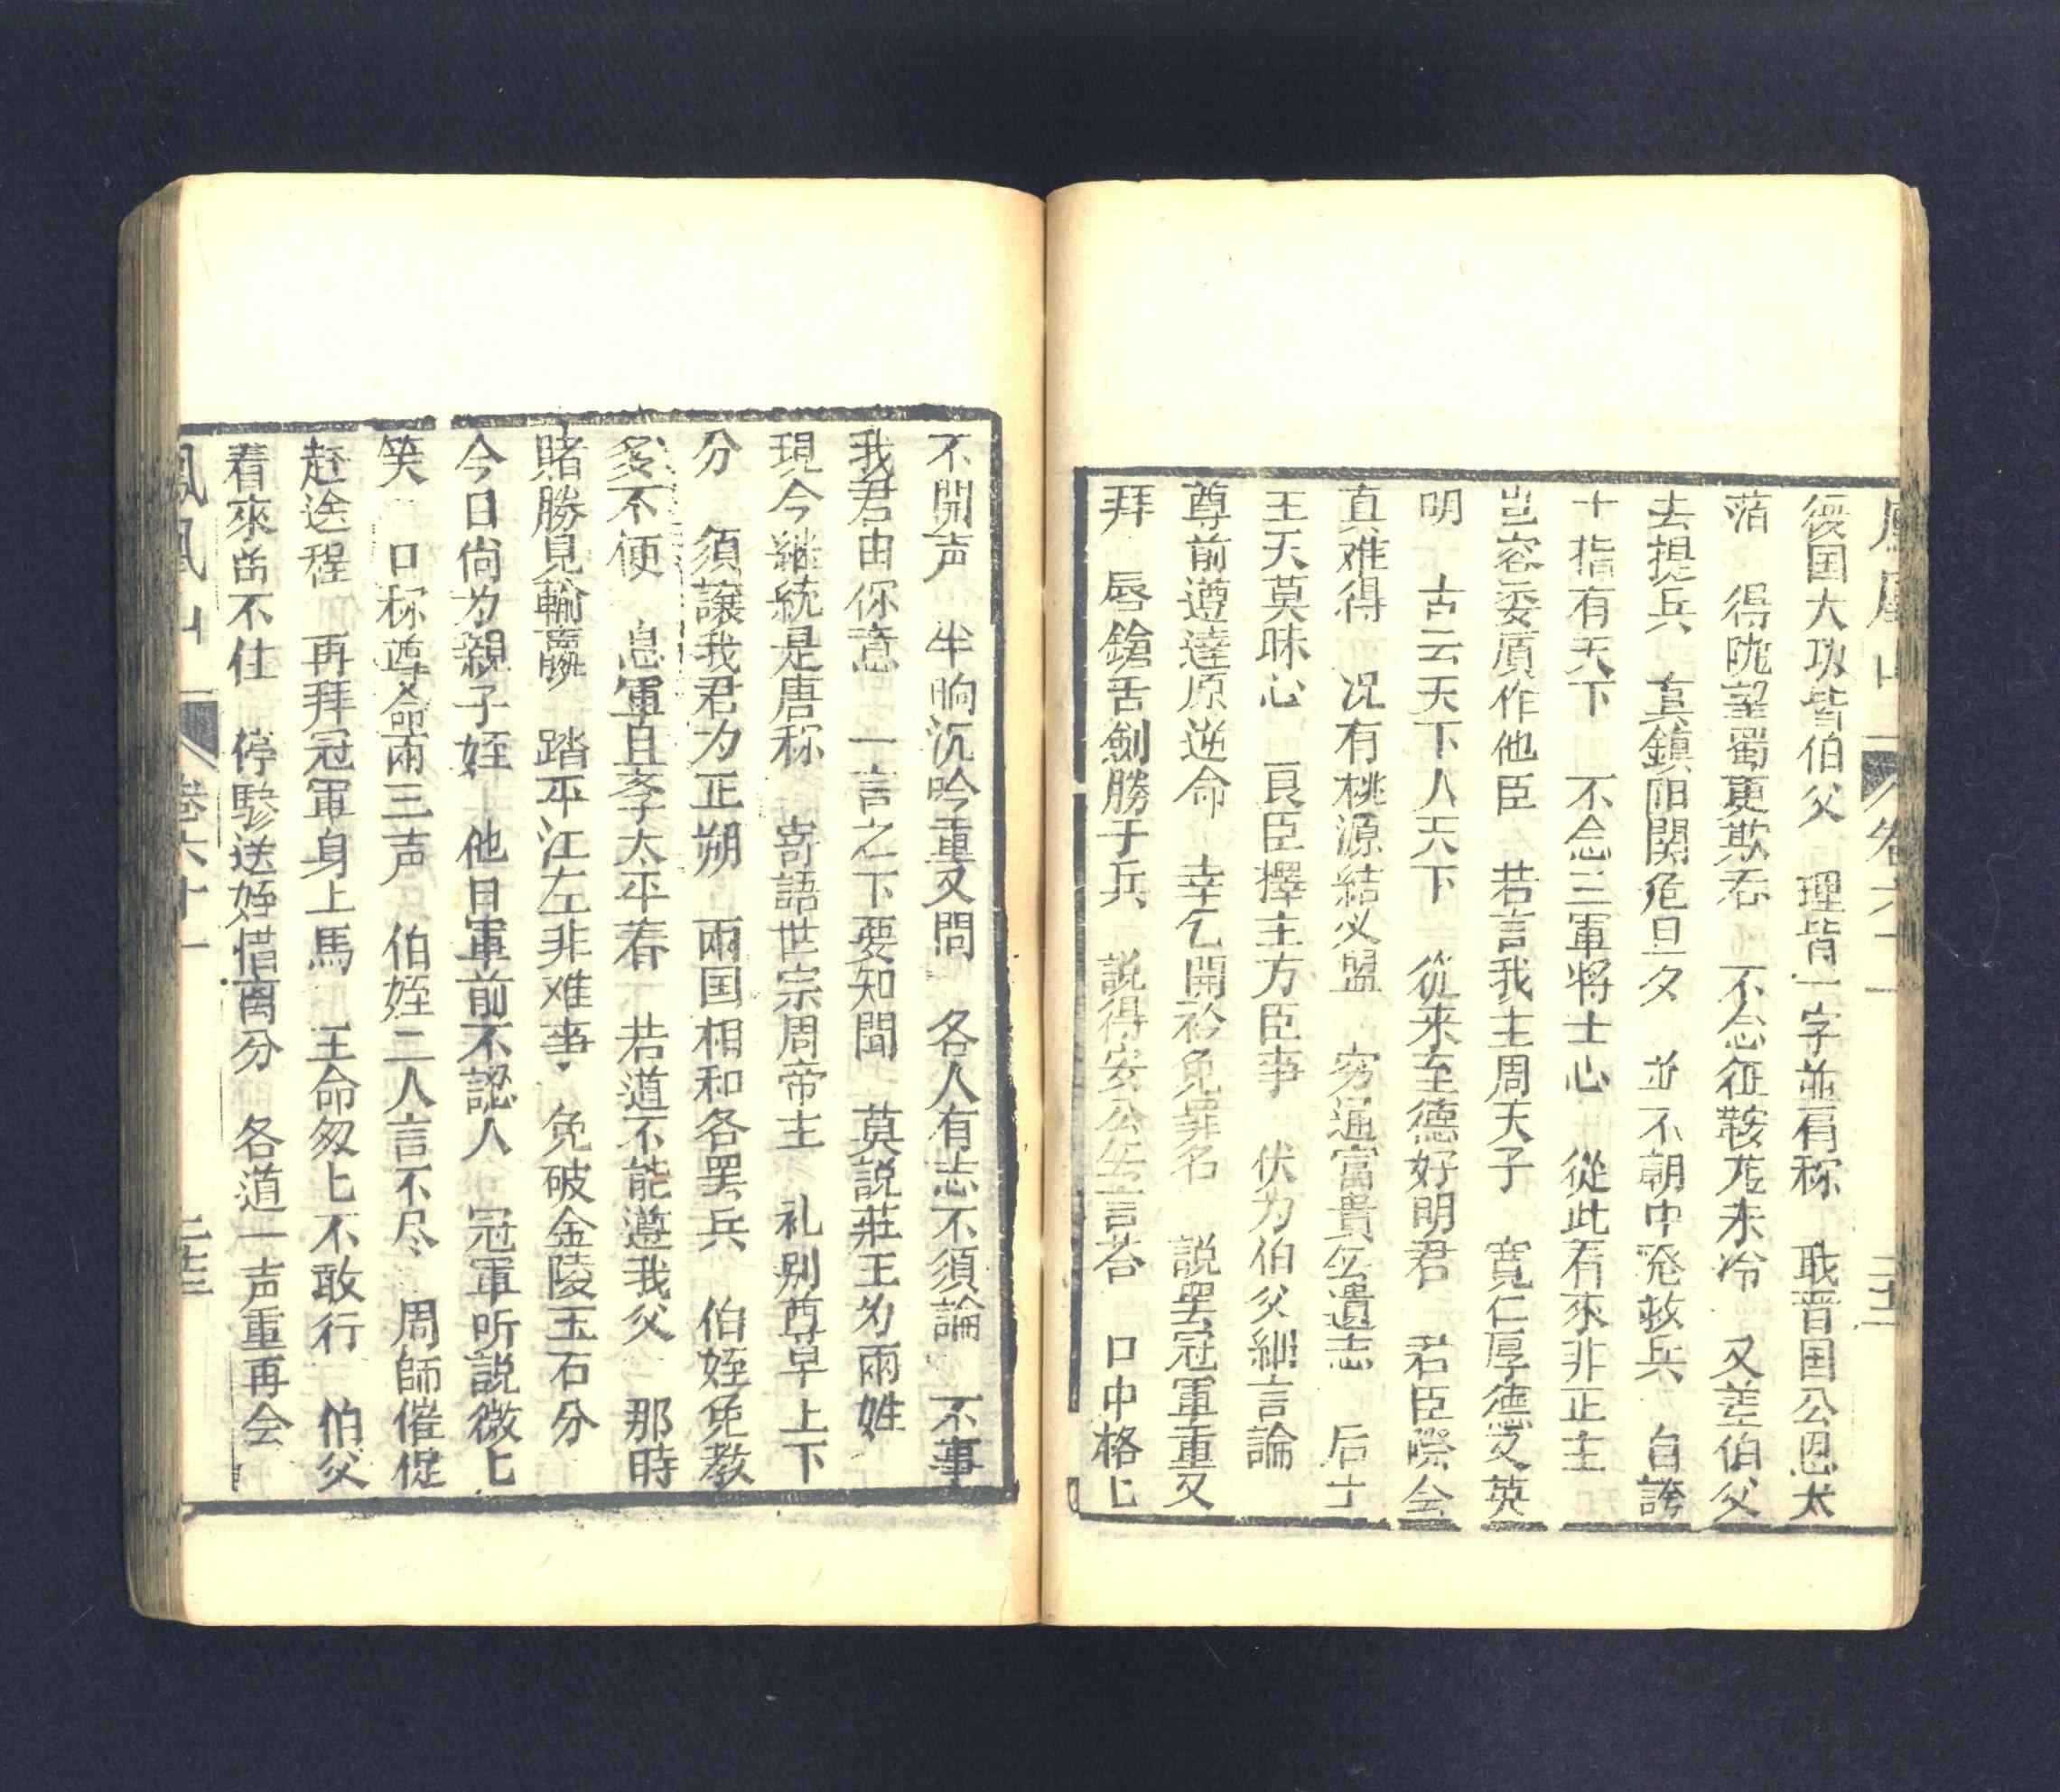 德国大功皆伯父　理背一字並肩称　戢晋国公恩太
落　得隴望蜀更欺吞　不念征鞍尨未冷　又差伯父
去提兵　真鎮阳関危旦夕　並不朝中発救兵　自誇
十指有天下　不念三軍将士心　從此看來非正主
岂容委質作他臣　若言我主周天子　寬仁厚德又英
明　古云天下人天下　從来至德好明君　君臣際会
真难得　况有桃源結义盟　穷通富貴　遺志　后土
王天莫昧心　良臣擇主方臣事　伏为伯父細言論
尊前遵達原逆命　幸乞開衿免罪名　説罢冠軍重又
拜　唇鎗舌劍勝于兵　説得安公　言荅　口中格匕
不開声　半晌沉吟重又問　各人有志不須論　不事
我君由你意　一言之下要知聞　莫説莊王为兩姓
現今継統是唐称　寄語世宗周帝主　礼别尊卑上下
分　須讓我君为正朔　兩国相和各罢兵　伯姪免教
多不便　息軍且享太平春　若道不能遵我父　那時
賭勝見輸贏　踏平江左非难事　免破金陵玉石分
今日尙为親子姪　他日軍前不認人　冠軍听説微匕
笑　口称尊命兩三声　伯姪二人言不尽　周師催促
赶途程　再拜冠軍身上馬　王命匆匕不敢行　伯父
看來畄不住　停驂送姪惜离分　各道一声重再会
鳳凰山　卷六十一